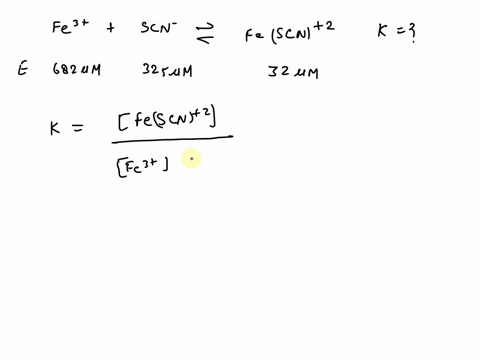 Fe³⁺ + SCN⁻ ⇌ Fe(SCN)⁺² K = ?
E 682 uM 325 uM 32 uM
K = [Fe(SCN)⁺²]
[Fe³⁺]